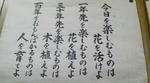 今日を楽しむものは
花を活けよ
一年先を楽しむものは
花を植えよ
十年先を楽しむものは
木を植えよ
百年をおもんばかるものは
人を育てよ